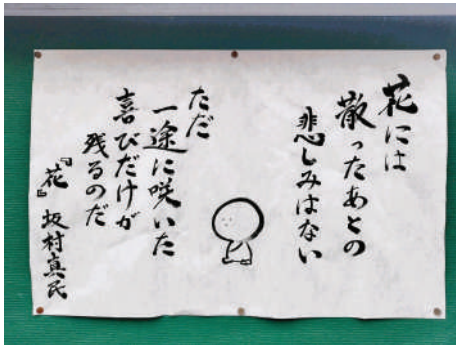 花には
散ったあとの
悲しみはない
ただ
一途に咲いた
喜びだけが
残るのだ
『花』坂村真民